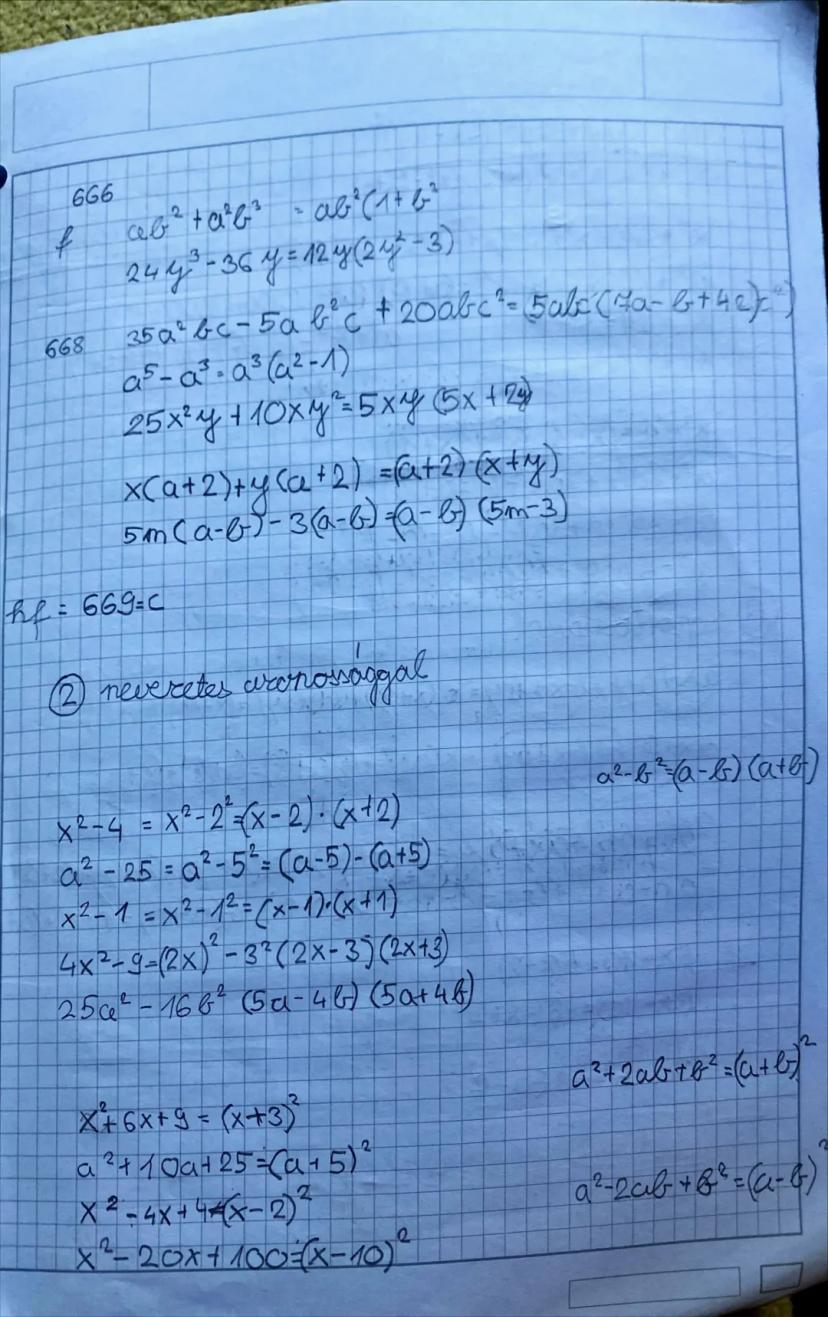 666
f ab² + a²b³ = ab²(1 + b²
24y³ - 36y = 12y(2y² - 3)
668 35a²bc - 5ab²c + 20abc² = 5abc(7a - b + 4c)
a⁵ - a³ = a³(a² - 1)
25x²y + 10xy² = 5xy(5x + 2y)
x(a+2) + y(a+2) = (a+2)·(x+y)
5m(a-b) - 3(a-b) = (a-b)(5m-3)
hf = 669 = c
② nevezetes azonossággal
a²-b²=(a-b)(a+b)
x² - 4 = x² - 2² = (x-2)·(x+2)
a² - 25 = a² - 5² = (a-5)-(a+5)
x² - 1 = x² - 1² = (x-1)·(x+1)
4x² - 9 = (2x)² - 3² (2x-3)(2x+3)
25a² - 16b² (5a-4b)(5a+4b)
a²+2ab+b²=(a+b)²
x² + 6x + 9 = (x+3)²
a² + 10a + 25 = (a+5)²
a²-2ab+b²=(a-b)²
x² - 4x + 4 = (x-2)²
x² - 20x + 100 = (x-10)²